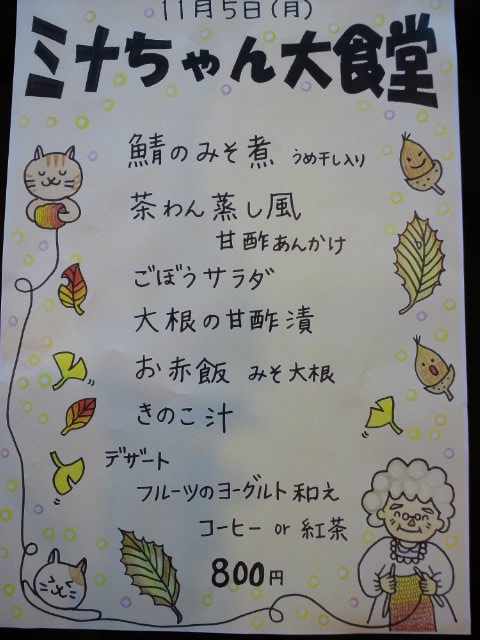 11月5日(月)
ミナちゃん大食堂
鯖のみそ煮 うめ干し入り
茶わん蒸し風
甘酢あんかけ
ごぼうサラダ
大根の甘酢漬
お赤飯 みそ大根
きのこ汁
デザート
フルーツのヨーグルト和え
コーヒー or 紅茶
800円